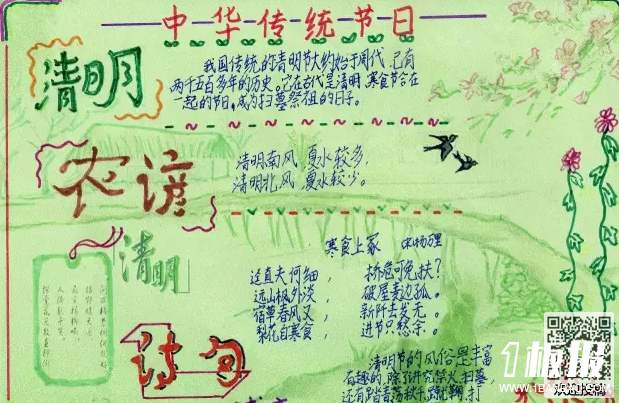 中华传统节日
清明
我国传统的清明节大约始于周代,已有
两千五百多年的历史。它在古代是清明,寒食节合在
一起的节日,成为扫墓祭祖的日子。
农谚
清明南风,夏水较多,
清明北风,夏水较少。
清明
寒食上冢 宋杨万里
迳直夫何细, 桥危可免扶?
远山枫外淡, 破屋麦边孤。
宿草春风又, 新阡去发无。
梨花自寒食, 进节只愁余。
诗句
清明节的风俗是丰富
有趣的,除了讲究禁火、扫墓
还有踏青、荡秋千、蹴鞠、打
1板报
WWW.1BANBAO.COM
欢迎投稿